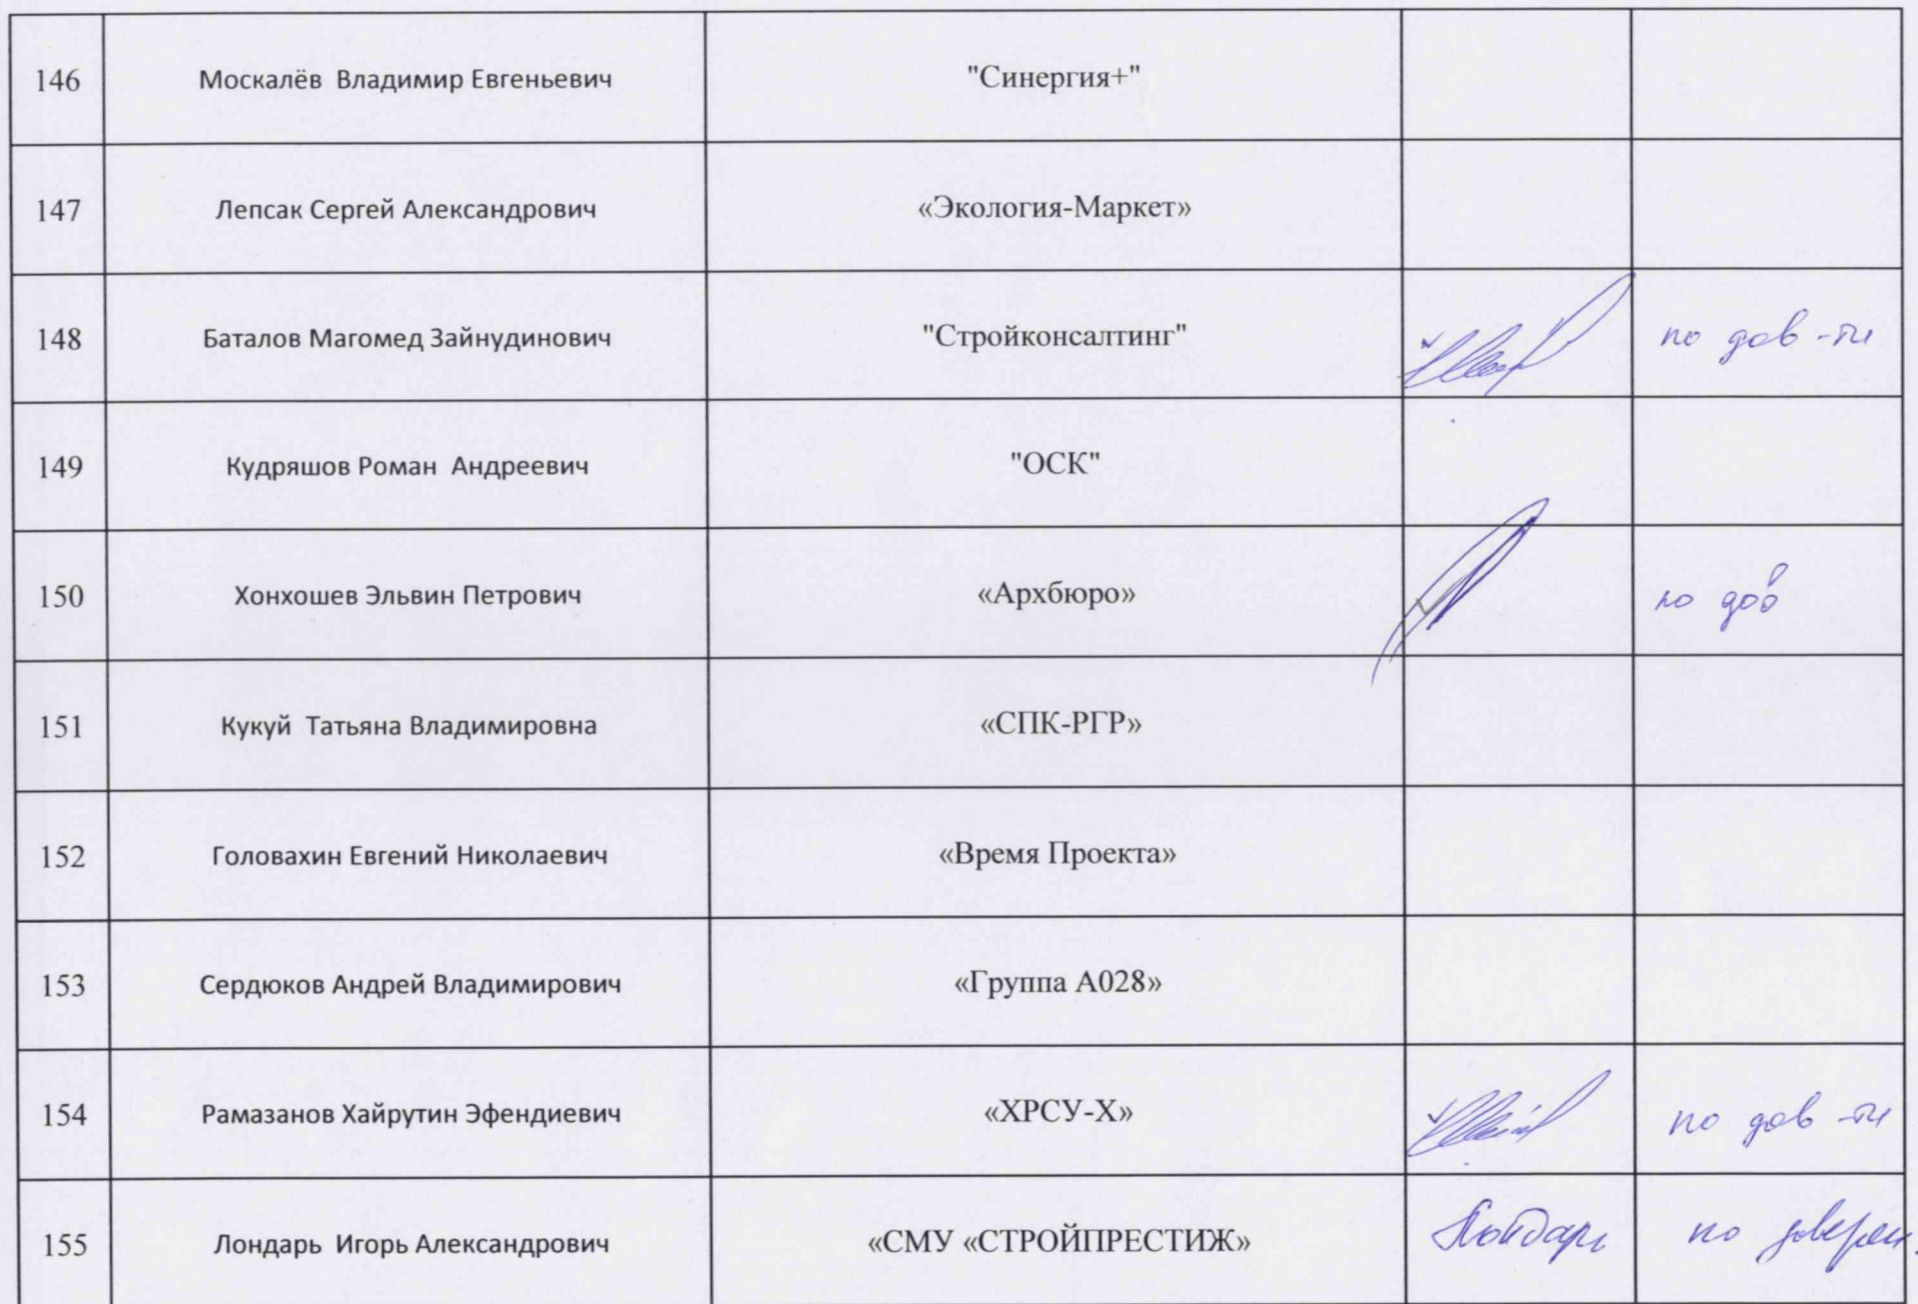 146 Москалёв Владимир Евгеньевич "Синергия+"
147 Лепсак Сергей Александрович «Экология-Маркет»
148 Баталов Магомед Зайнудинович "Стройконсалтинг" по дов-ти
149 Кудряшов Роман Андреевич "ОСК"
150 Хонхошев Эльвин Петрович «Архбюро» по дов
151 Кукуй Татьяна Владимировна «СПК-РГР»
152 Головахин Евгений Николаевич «Время Проекта»
153 Сердюков Андрей Владимирович «Группа А028»
154 Рамазанов Хайрутин Эфендиевич «ХРСУ-Х» по дов-ти
155 Лондарь Игорь Александрович «СМУ «СТРОЙПРЕСТИЖ» Лондарь по доверен.